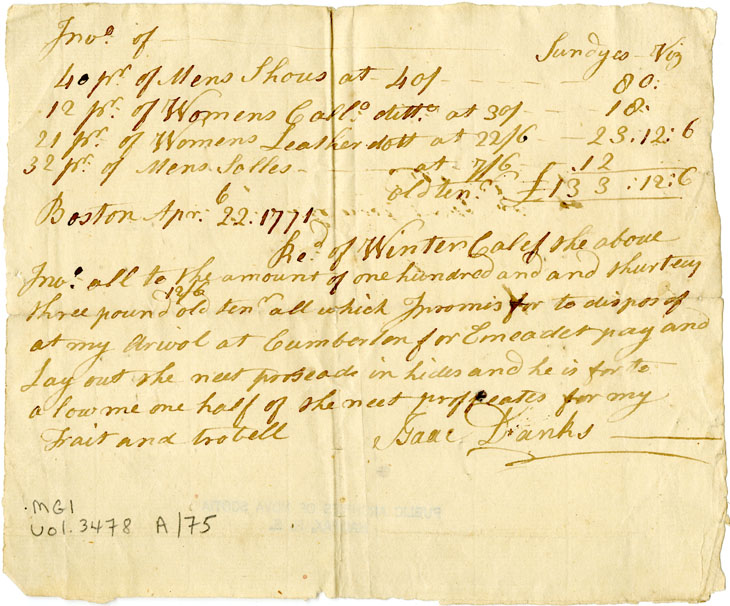 Invo. of Sundyes Viz
40 pr. of Mens Shous at 40/ 80:
12 pr. of Womens Call.o ditto at 30/ 18:
21 pr. of Womens Leather dott at 22/6 23:12:6
32 pr. of Mens Solles at 7/6 12
old ten.r £133:12:6
Boston Apr. 22: 1771
Re.d of Winter Calef the above
Invo. all to the amount of one hundred and and thurtey
12/6
three pound old ten.r all which I promis for to dispos of
at my Arivol at Cumberlon for Emeadet pay and
Lay out the neet proseads in hides and he is for to
alow me one half of the neet proffeates for my
Frait and trobell Isaac Danks
MG1
Vol. 3478 A/75
PUBLIC ARCHIVES OF NOVA SCOTIA